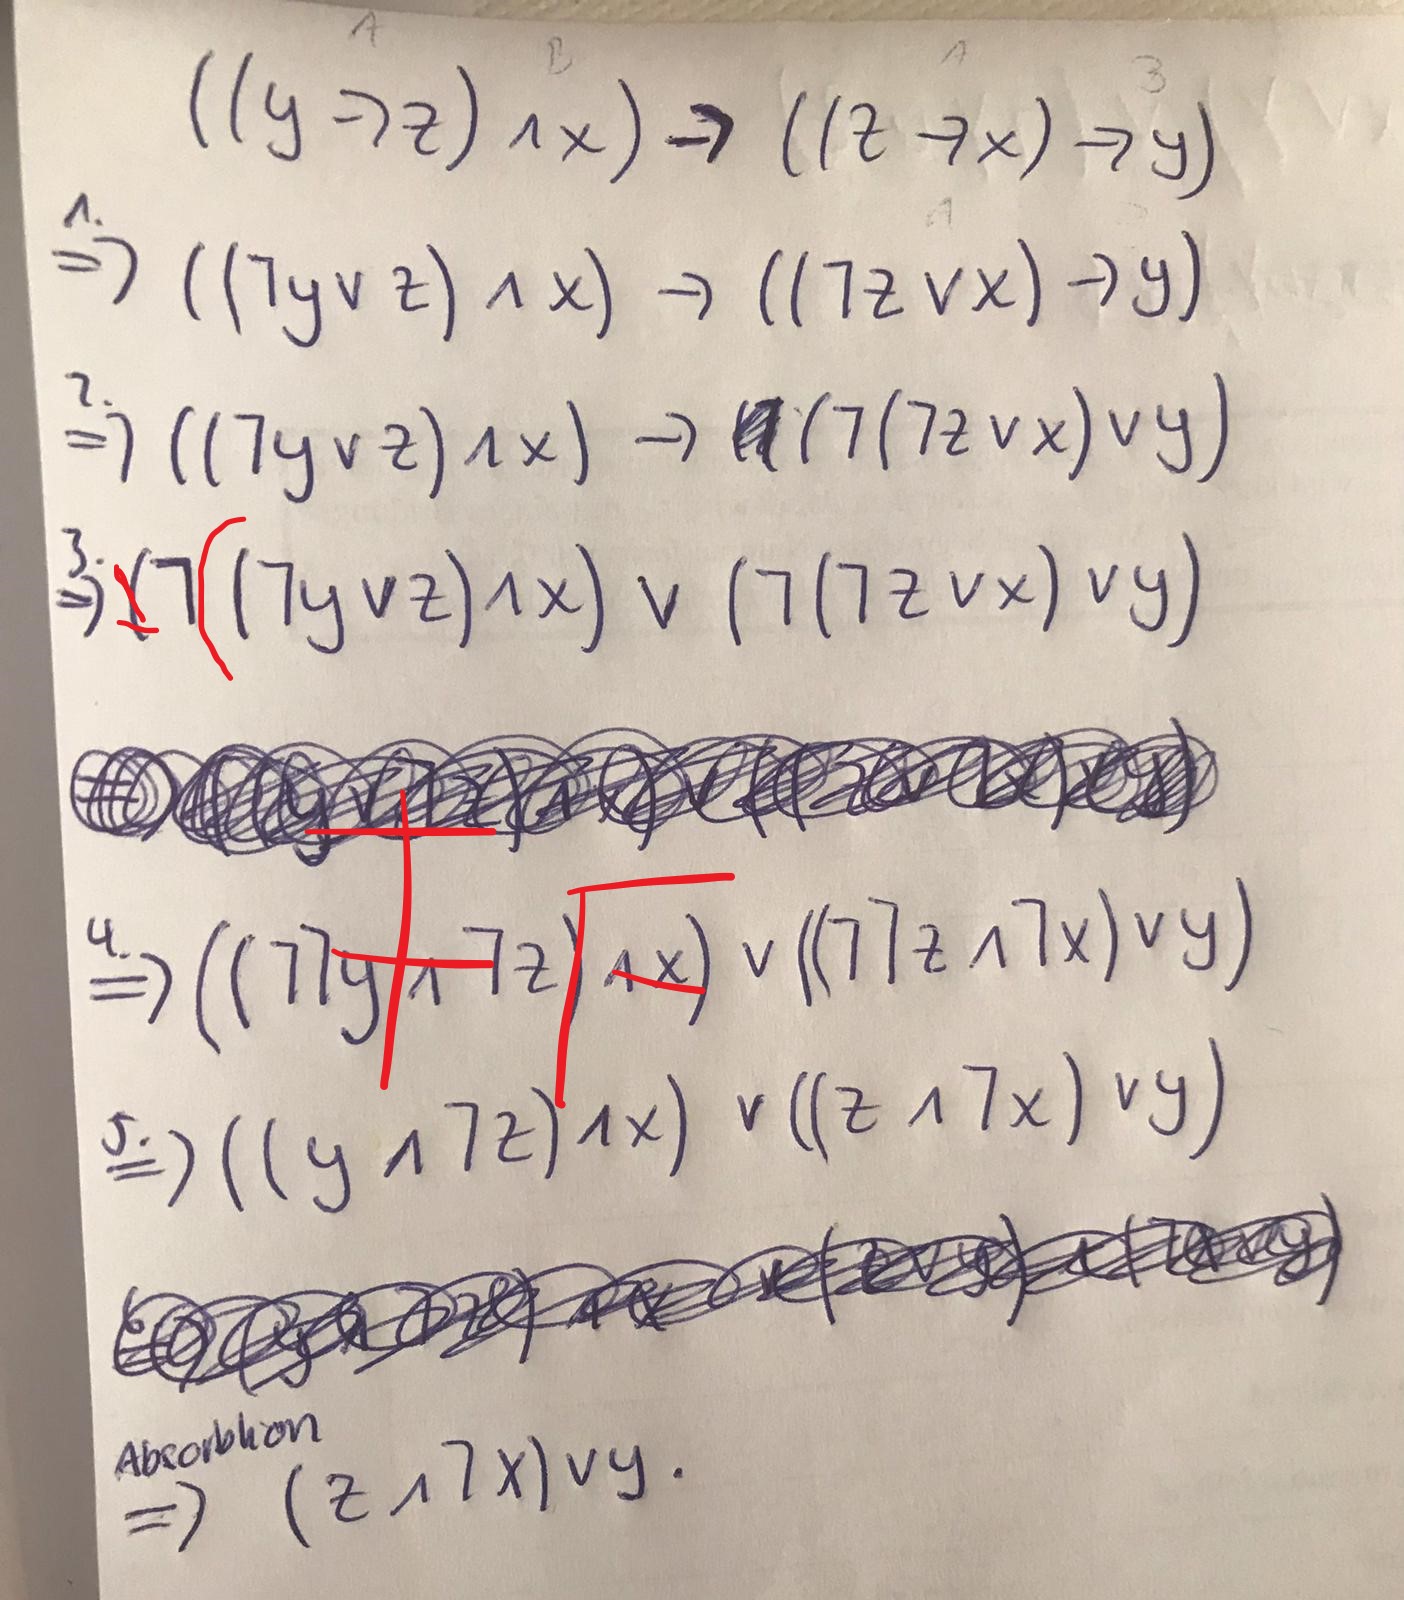 A B A 3
((y → z) ∧ x) → ((z → x) → y)
A
1. ⇒ ((¬y ∨ z) ∧ x) → ((¬z ∨ x) → y)
2. ⇒ ((¬y ∨ z) ∧ x) → (¬(¬z ∨ x) ∨ y)
3. ⇒ (¬((¬y ∨ z) ∧ x) ∨ (¬(¬z ∨ x) ∨ y)
4. ⇒ ((¬¬y ∧ ¬z) ∧ x) ∨ ((¬¬z ∧ ¬x) ∨ y)
5. ⇒ ((y ∧ ¬z) ∧ x) ∨ ((z ∧ ¬x) ∨ y)
Absorbtion
⇒ (z ∧ ¬x) ∨ y.